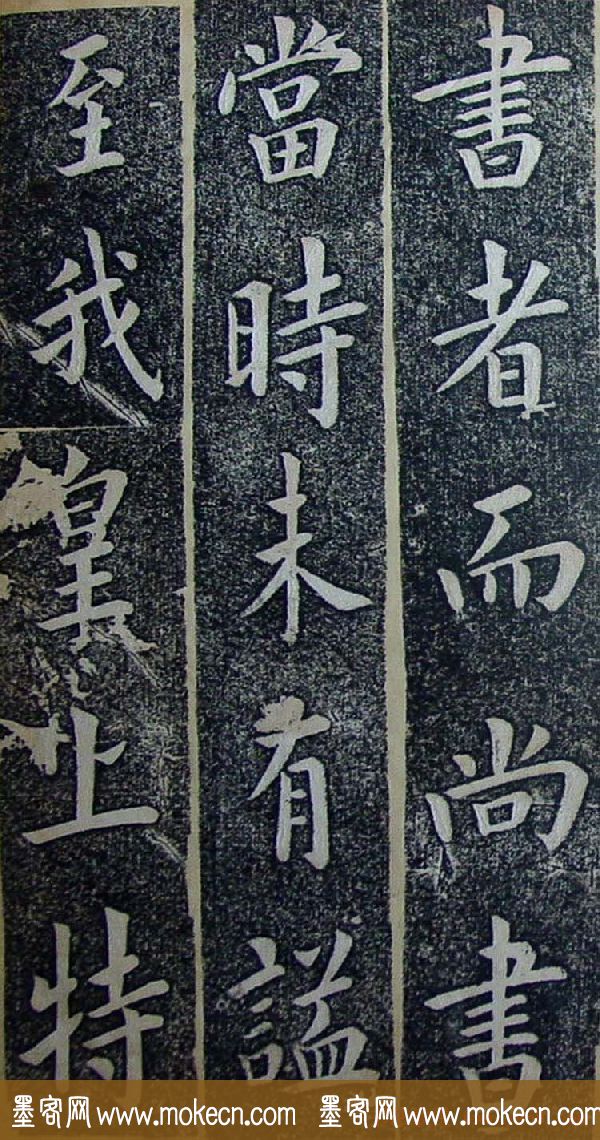 書者而尚書
當時未有謚
至我皇上特
墨客网 www.mokecn.com 墨客网 www.mokecn.com